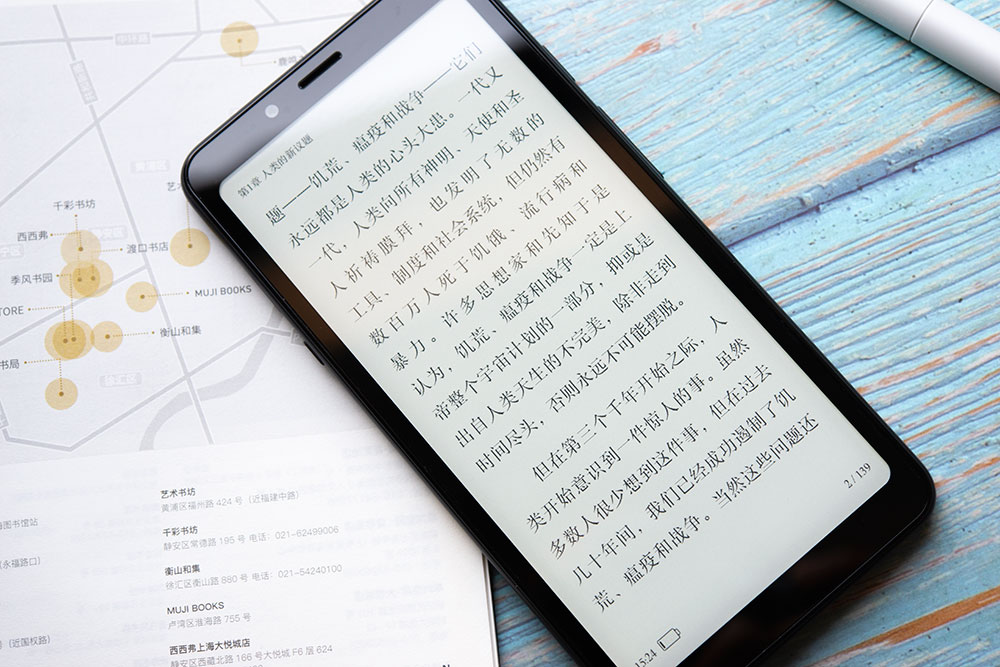 第1章 人类的新议题
题——饥荒、瘟疫和战争——它们
永远都是人类的心头大患。一代又
一代，人类向所有神明、天使和圣
人祈祷膜拜，也发明了无数的
工具、制度和社会系统，但仍然有
数百万人死于饥饿、流行病和
暴力。许多思想家和先知于是
认为，饥荒、瘟疫和战争一定是上
帝整个宇宙计划的一部分，抑或是
出自人类天生的不完美，除非走到
时间尽头，否则永远不可能摆脱。
但在第三个千年开始之际，人
类开始意识到一件惊人的事。虽然
多数人很少想到这件事，但在过去
几十年间，我们已经成功遏制了饥
荒、瘟疫和战争。当然这些问题还
2/139
15:24
千彩书坊
西西弗
渡口书店
季风书园
MUJI BOOKS
TORE
衡山和集
书局
艺
鹿鸣
静安区
徐汇区
海图书馆站
(永福路口)
(近国权路)
艺术书坊
黄浦区福州路 424 号（近福建中路）
千彩书坊
静安区常德路 195 号 电话：021-62499006
衡山和集
徐汇区衡山路 880 号 电话：021-54240100
MUJI BOOKS
卢湾区淮海路 755 号
西西弗上海大悦城店
静安区西藏北路 166 号大悦城 F6 层 624